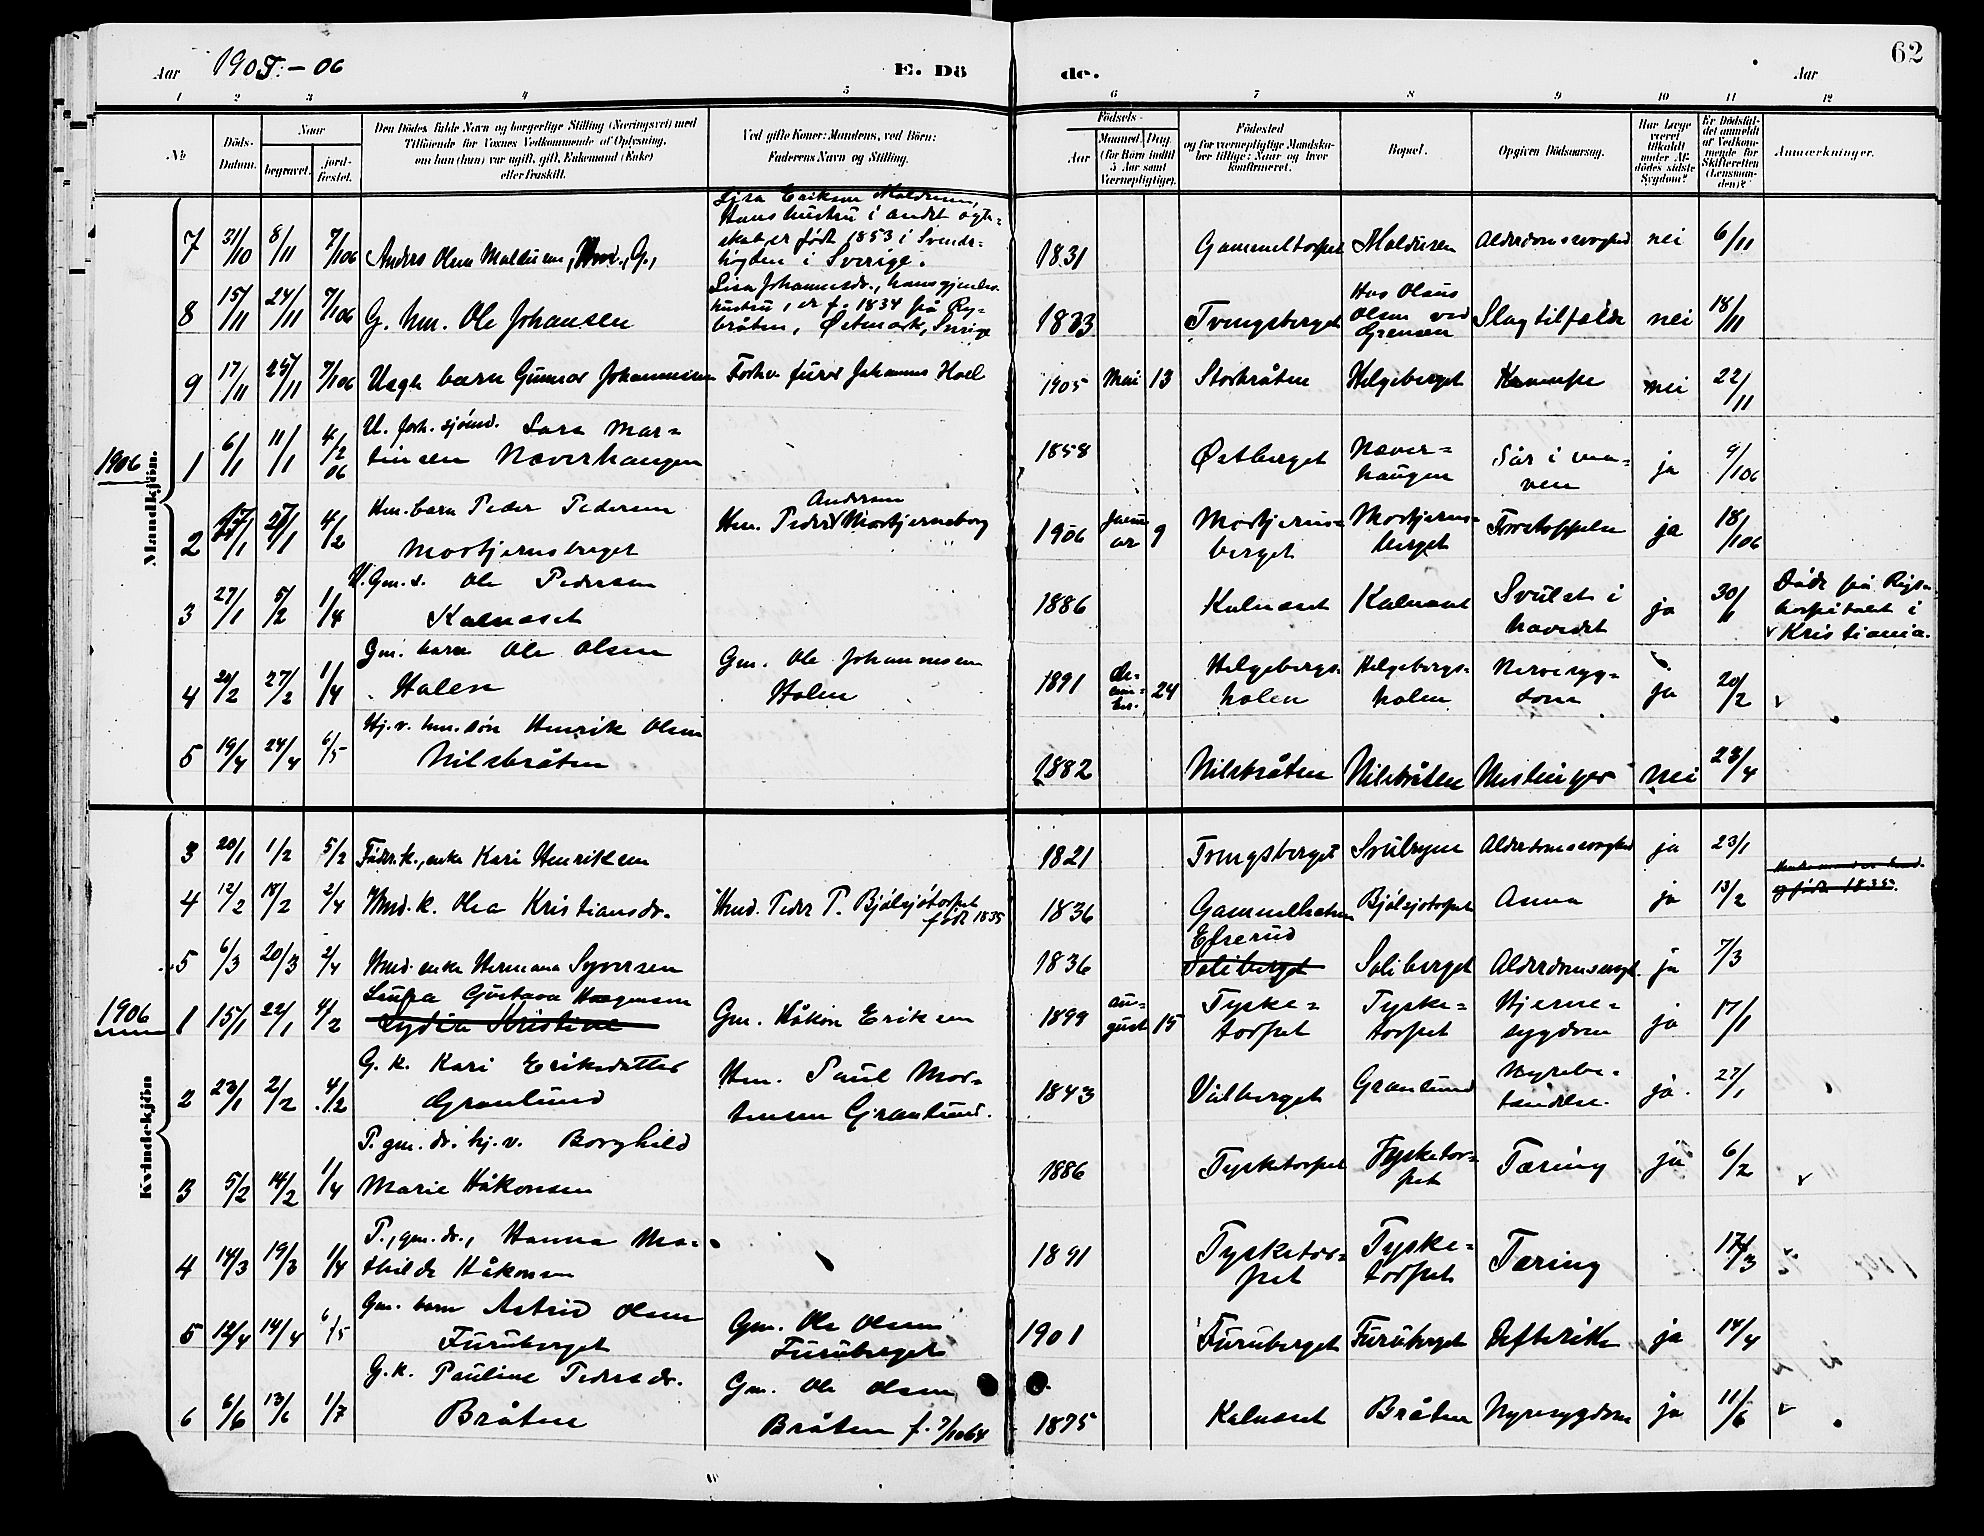 62
Aar 1905.-06 E. Dö de. Aar
1 2 3 4 5 6 7 8 9 10 11 12
No Döds-Datum. Naar begravet. jord-fæstet.
Den Dödes fulde Navn og borgerlige Stilling (Næringsvei) med
Tilföiende for Voxnes Vedkommende af Oplysning,
om han (hun) var ugift, gift, Enkemand (Enke)
eller fraskilt.
Ved gifte Koner: Mandens, ved Börn:
Faderens Navn og Stilling.
Födsels- Aar Maaned Dag (for Börn indtil 5 Aar samt Værnepligtige).
Födested
og for værnepligtige Mandska-
ber tillige: Naar og hvor
konfirmeret.
Bopæl.
Opgiven Dödsaarsag.
Har Læge været tilkaldt under Afdödes sidste Sygdom?
Er Dödsfaldet anmeldt af Vedkommende for Skifteretten (Lensmanden)?
Anmærkninger.
Mandkjön.
Lisa Eriksen Malduren,
Hans hustru i andet egte-
skab er født 1853 i Svends-
högden i Sverige.
7 31/10 8/11 7/1 06 Anders Olsen Malduren, G., 1831 Gammeltorpet Malduren Alderdomssvaghed nei 6/11
Lisa Johannesdr., hans gjenlev.
hustru, er f. 1834 på Ry-
bråten, Östmark, Sverige
8 15/11 24/11 7/1 06 G. Hm. Ole Johansen 1833 Tvengsberget Hos Olaus
Olsen ved
Grensen Slagtilfælde nei 18/11
9 17/11 25/11 7/1 06 Uegte barn Gunnar Johannesen Forhv. furer Johannes Hoel 1905 Mai 13 Storbråten Helgeberget Krampe nei 22/11
1906
1 6/1 11/1 4/2 06 U. forh. sjömd. Lars Mar-
tinsen Næverhaugen 1858 Østberget Næver-
haugen Sår i ma-
ven ja 9/1 06
2 4/2 Hm. barn Peder Pedersen
Mortjernsberget Hm. Peder Andersen Mortjernsberg 1906 Janu
ar 9 Mortjerns-
berget Mortjerns-
berget ja 18/1 06
3 27/1 5/2 1/4 U. Gm. s. Ole Pedersen
Kalnæset 1886 Kalnæset Kalnæset Svulst i
hovedet ja 30/1 Döde på Rigs-
hospitalet i
Kristiania.
4 20/2 27/2 1/4 Gm. barn Ole Olsen
Halen Gm. Ole Johannesen
Holen 1891 de-
cem-
ber. 24 Helgebergs-
holen Helgebergs-
holen Nervesyg-
dom ja 20/2
5 19/4 24/4 6/5 Hj. v. hm. sön Henrik Olsen
Nilsbråten 1882 Nilsbråten Nilsbråten Mestinger nei 23/4
Kvindekjön
3 20/1 1/2 5/2 Föderk., enke Kari Henriksen 1821 Tvengsberget Svulryen Alderdomssvaghed ja 23/1
4 12/2 18/2 2/4 Hmd. k. Olea Kristiansdr. Hmd. Peder P. Bjölsjötorpet
født 1835 1836 Bjölsjötorpet ja 13/2 født 1835.
5 6/3 20/3 2/4 Hmd. enke Hermana Syversen 1836 Efserud
Soliberget Soliberget Alderdomssvagh. ja 7/3
1906
1 15/1 22/1 4/2 Laura Gustava Haagensen
Lydia Kristine Gm. Håkon Eriksen 1899 au-
gust 15 Tyske-
torpet Tyske-
torpet Hjerne-
sygdom ja 17/1
2 23/1 2/2 4/2 G. k. Kari Eriksdatter
Granlund Hm. Paul Mor-
tensen Granlund. 1843 Vålberget Granlund Nyrebe-
tændelse. ja. 27/1
3 5/2 14/2 1/4 P. gm. dr. hj. v. Borghild
Marie Håkonsen 1886 Tysketorpet Tysketor-
pet Tæring ja 6/2
4 14/3 19/3 1/4 P., gm. dr., Hanna Ma-
thilde Håkonsen 1891 Tysketor-
pet Tyske-
torpet Tæring 17/3
5 12/4 14/4 6/5 Gm. barn Astrid Olsen
Furuberget Gm. Ole Olsen
Furuberget 1901 Furuberget Furuberget Difterik ja 14/4
6 6/6 13/6 1/7 G. k. Pauline Pedersdr.
Bråten Gm. Ole Olsen
Bråten f. 1875 Kalnæset Bråten Nyresygdom ja 11/6